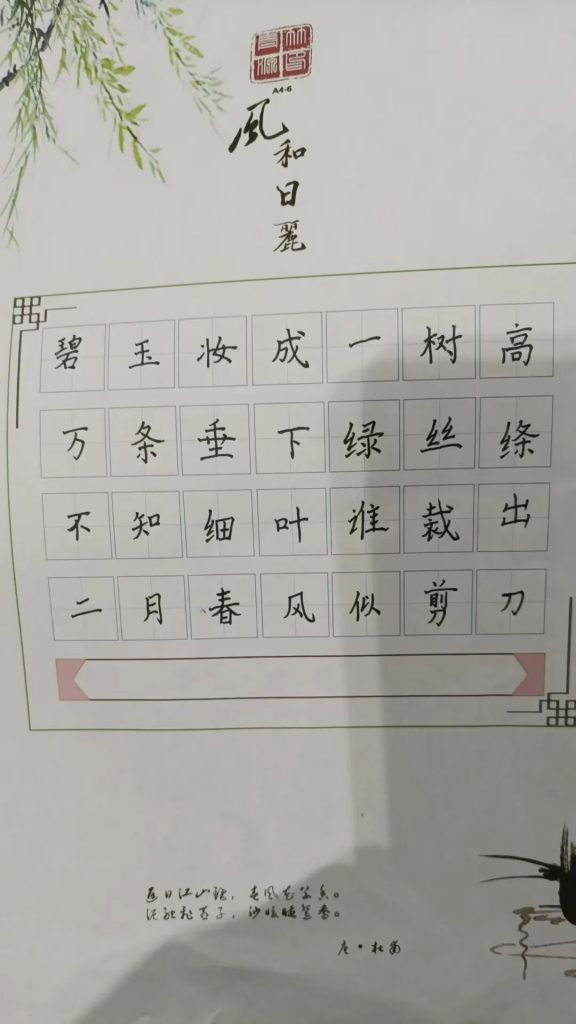 A4-6
風
和
日
麗
碧玉妆成一树高
万条垂下绿丝绦
不知细叶谁裁出
二月春风似剪刀
迟日江山丽，春风花草香。
泥融飞燕子，沙暖睡鸳鸯。
唐·杜甫